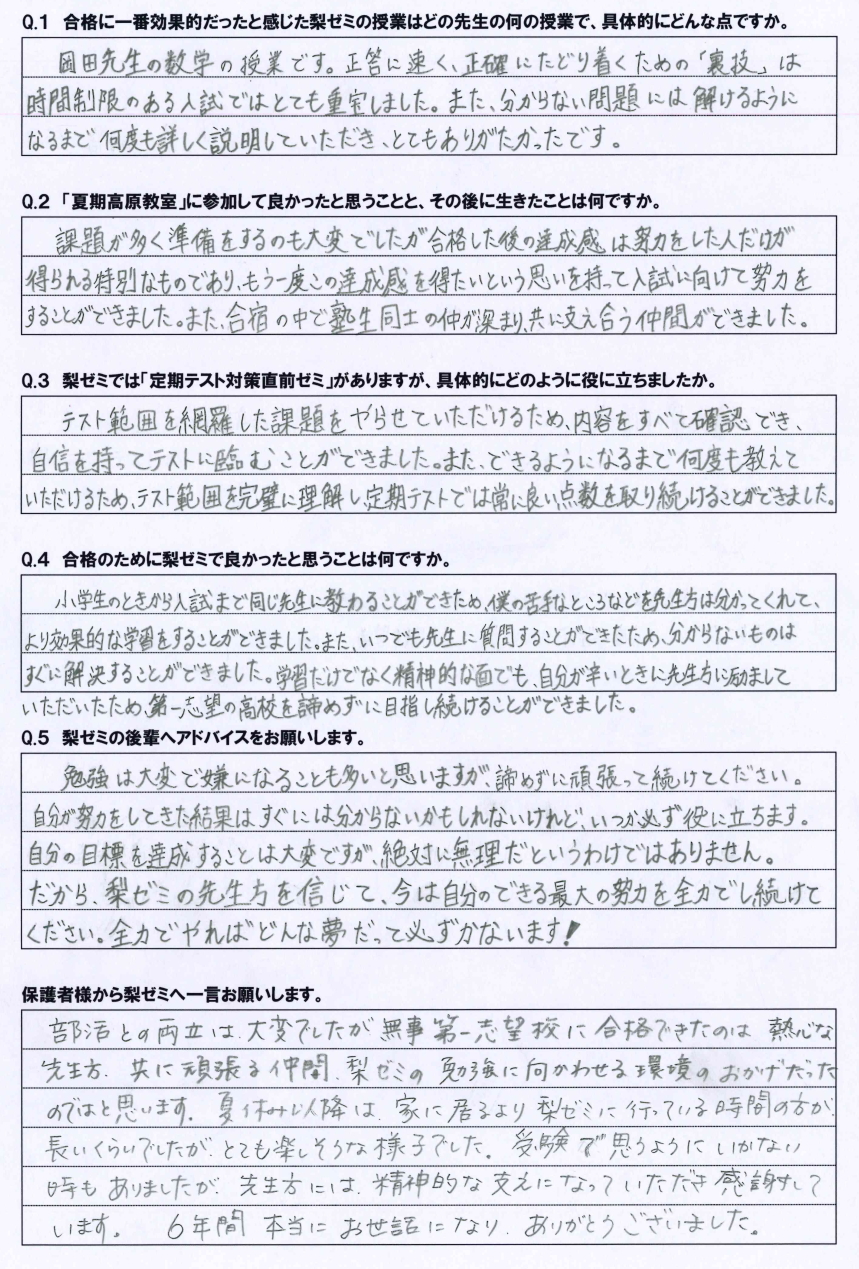 Q.1 合格に一番効果的だったと感じた梨ゼミの授業はどの先生の何の授業で、具体的にどんな点ですか。
岡田先生の数学の授業です。正答に速く、正確にたどり着くための「裏技」は
時間制限のある入試ではとても重宝しました。また、分からない問題には解けるように
なるまで何度も詳しく説明していただき、とてもありがたかったです。
Q.2 「夏期高原教室」に参加して良かったと思うことと、その後に生きたことは何ですか。
課題が多く準備をするのも大変でしたが合格した後の達成感は努力をした人だけが
得られる特別なものであり、もう一度この達成感を得たいという思いを持って入試に向けて努力を
することができました。また、合宿の中で塾生同士の仲が深まり、共に支え合う仲間ができました。
Q.3 梨ゼミでは「定期テスト対策直前ゼミ」がありますが、具体的にどのように役に立ちましたか。
テスト範囲を網羅した課題をやらせていただけるため、内容をすべて確認でき、
自信を持ってテストに臨むことができました。また、できるようになるまで何度も教えて
いただけるため、テスト範囲を完璧に理解し、定期テストでは常に良い点数を取り続けることができました。
Q.4 合格のために梨ゼミで良かったと思うことは何ですか。
小学生のときから入試まで同じ先生に教わることができため、僕の苦手なところなどを先生方は分かってくれて、
より効果的な学習をすることができました。また、いつでも先生に質問することができたため、分からないものは
すぐに解決することができました。学習だけでなく精神的な面でも、自分が辛いときに先生方に励まして
いただいたため、第一志望の高校を諦めずに目指し続けることができました。
Q.5 梨ゼミの後輩へアドバイスをお願いします。
勉強は大変で嫌になることも多いと思いますが、諦めずに頑張って続けてください。
自分が努力をしてきた結果はすぐには分からないかもしれないけれど、いつか必ず役に立ちます。
自分の目標を達成することは大変ですが、絶対に無理だというわけではありません。
だから、梨ゼミの先生方を信じて、今は自分のできる最大の努力を全力でし続けて
ください。全力でやればどんな夢だって必ずかないます!
保護者様から梨ゼミへ一言お願いします。
部活との両立は、大変でしたが無事第一志望校に合格できたのは 熱心な
先生方、共に頑張る仲間、梨ゼミの勉強に向かわせる環境のおかげだった
のではと思います。夏休み以降は、家に居るより梨ゼミに行っている時間の方が
長いくらいでしたが、とても楽しそうな様子でした。受験で思うようにいかない
時もありましたが、先生方には、精神的な支えになっていただき感謝して
います。 6年間 本当にお世話になり、ありがとうございました。